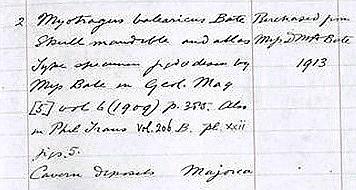 2 Myotragus balearicus Bate Purchased from
Skull mandible and atlas Miss D M A Bate
Type specimen figd & descr by 1913
Miss Bate in Geol. Mag
[5] vol 6 (1909) p. 385. Also
in Phil Trans Vol. 206 B. pl. xxii
figs. 5.
Cavern deposits Majorca